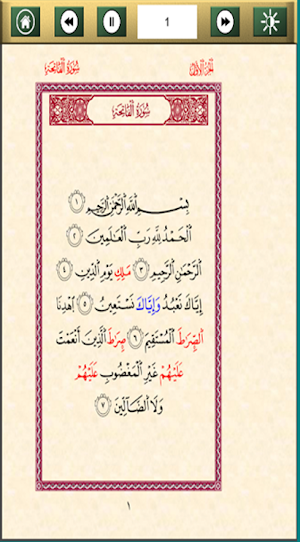 1
سُورَةُ ٱلْفَاتِحَةِ الجُزْءُ الأَوَّلُ
سُورَةُ ٱلْفَاتِحَةِ
بِسْمِ ٱللَّهِ ٱلرَّحْمَٰنِ ٱلرَّحِيمِ ١
ٱلْحَمْدُ لِلَّهِ رَبِّ ٱلْعَٰلَمِينَ ٢
ٱلرَّحْمَٰنِ ٱلرَّحِيمِ ٣ مَلِكِ يَوْمِ ٱلدِّينِ ٤
إِيَّاكَ نَعْبُدُ وَإِيَّاكَ نَسْتَعِينُ ٥ ٱهْدِنَا
ٱلصِّرَٰطَ ٱلْمُسْتَقِيمَ ٦ صِرَٰطَ ٱلَّذِينَ أَنْعَمْتَ
عَلَيْهِمْ غَيْرِ ٱلْمَغْضُوبِ عَلَيْهِمْ
وَلَا ٱلضَّآلِّينَ ٧
١